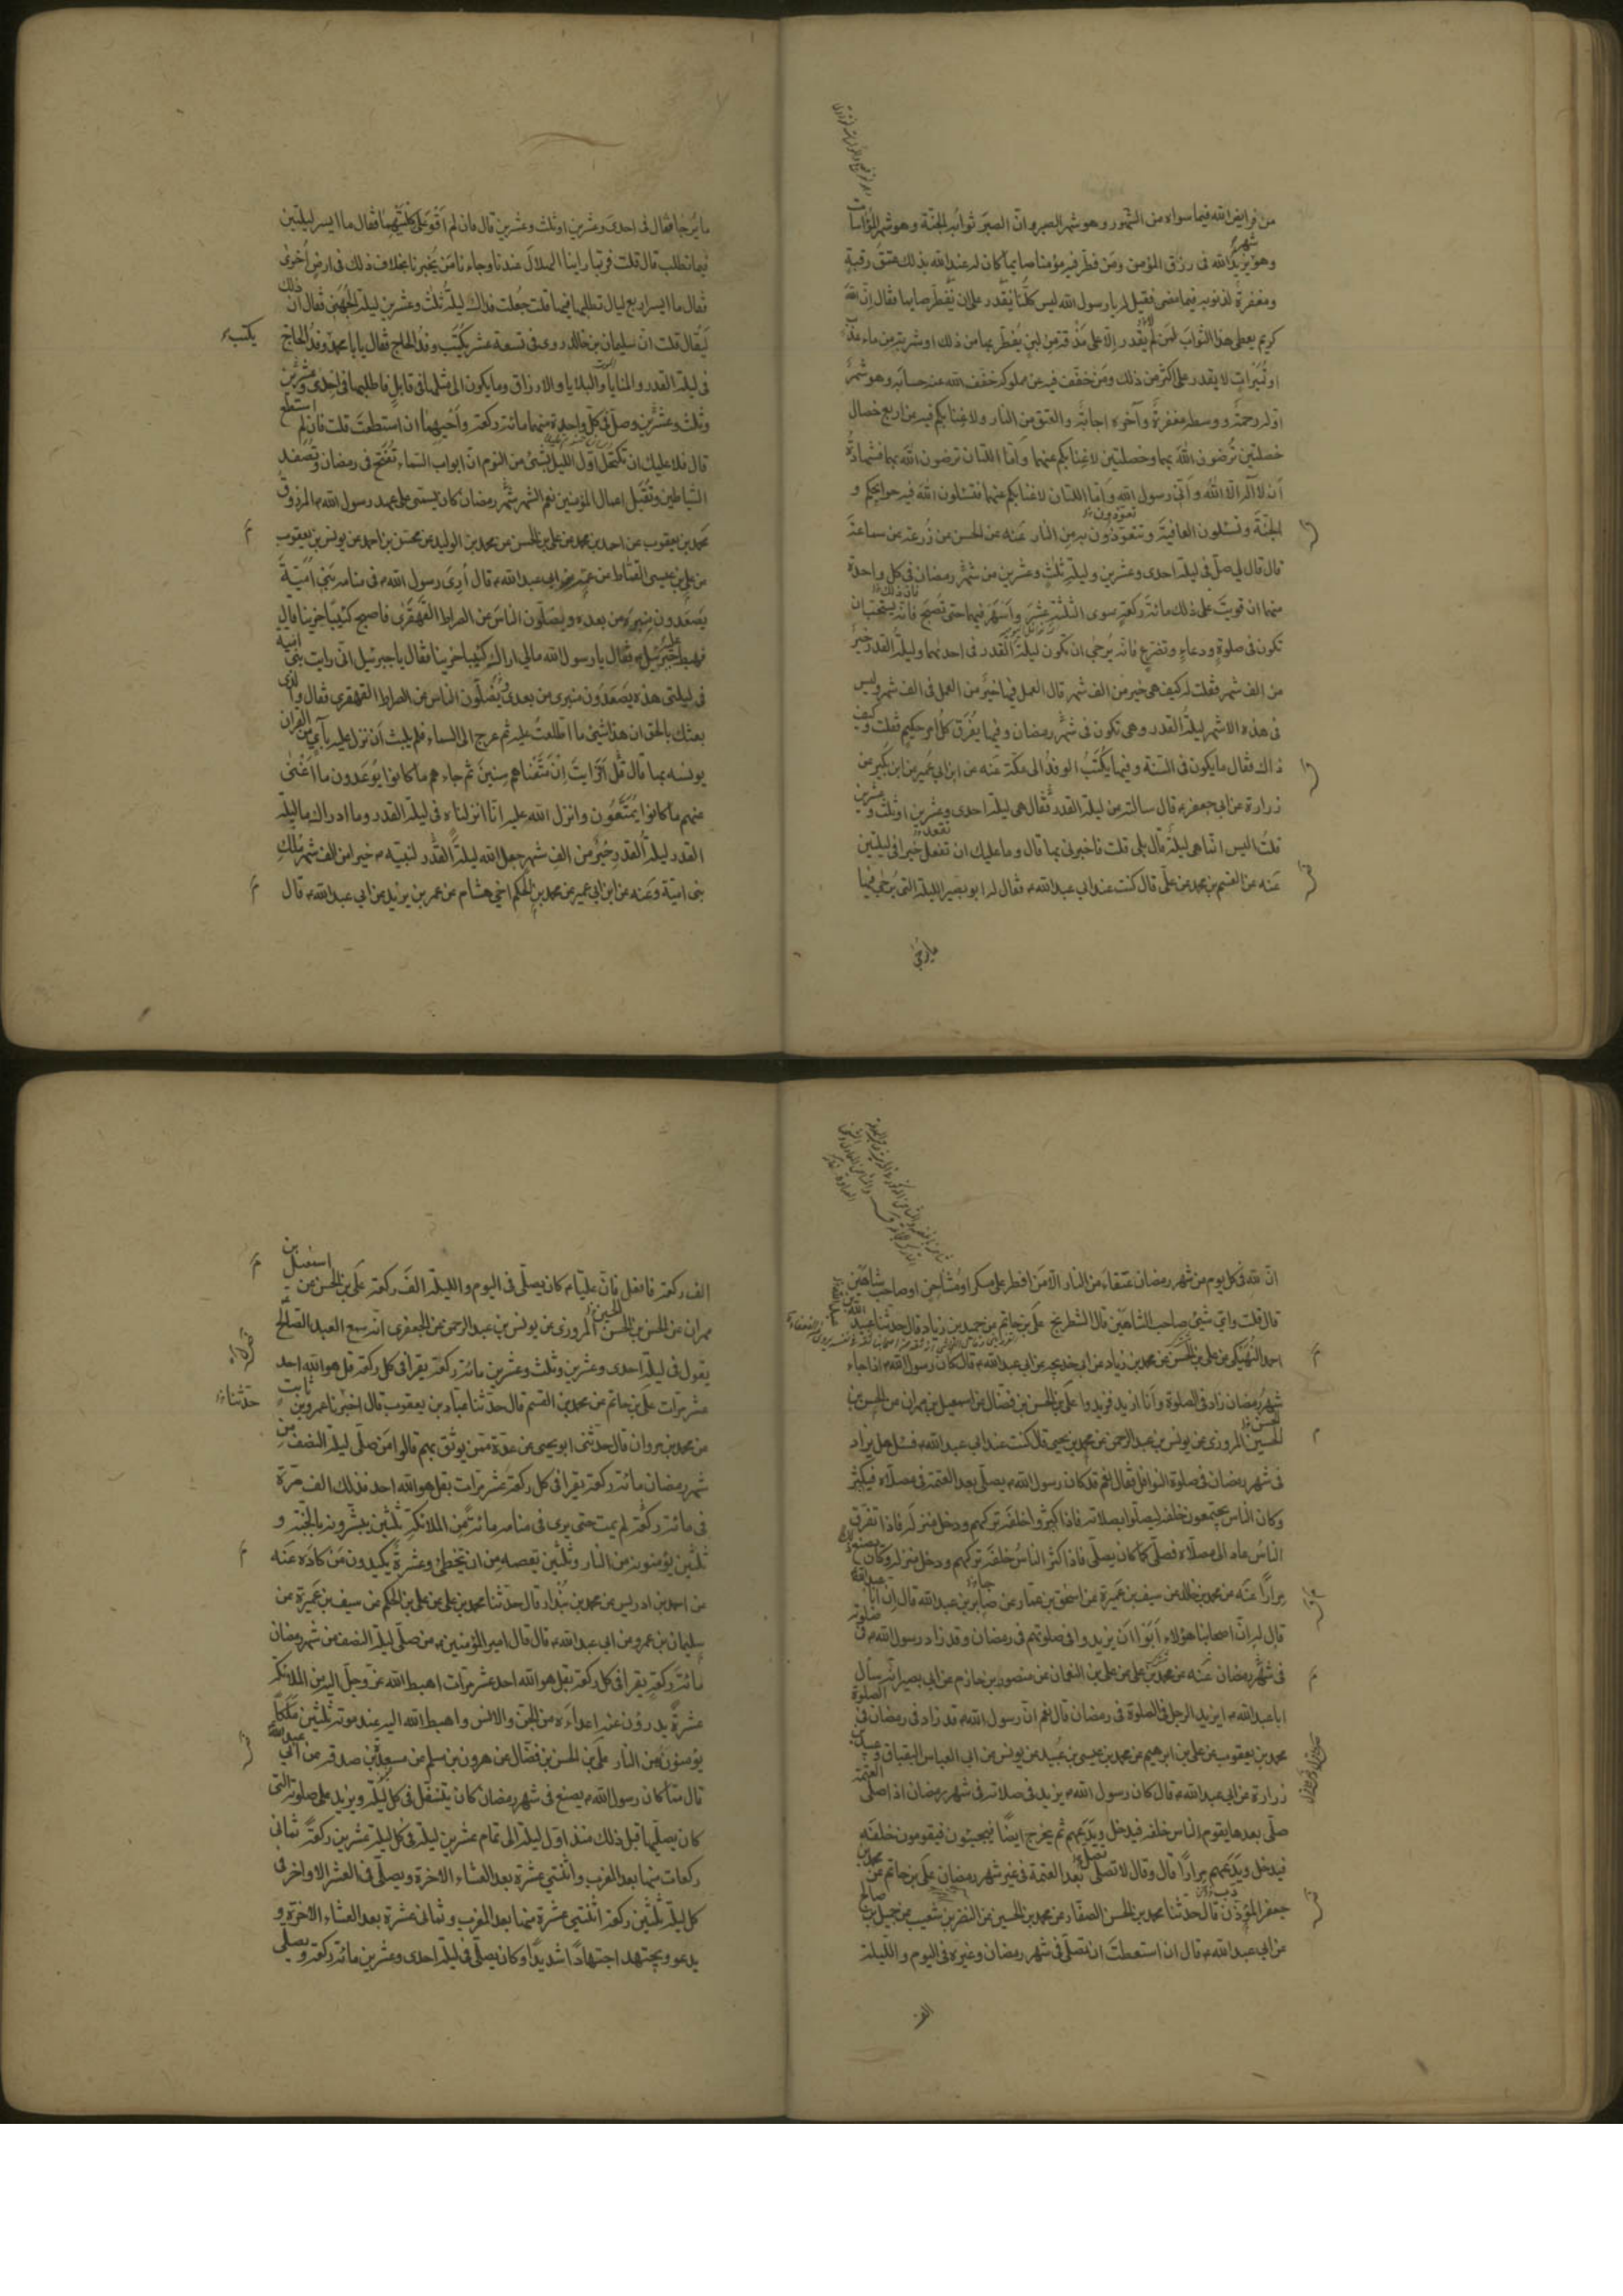 من فرايض الله فيما سواه من الشهور وهو شهر الصبر وان الصبر ثوابه الجنة وهو شهر المؤاساة
وهو شهر يزيد الله فى رزق المؤمن ومن فطر فيه مؤمنا صايما كان له عند الله بذلك عتق رقبة
ومغفرة لذنوبه فيما مضى فقيل له يا رسول الله ليس كلنا يقدر على ان يفطر صايما فقال ان الله
كريم يعطى هذا الثواب لمن لم يقدر الا على مذقة من لبن يفطر بها من ذلك او شربة من ماء عذب
او تميرات لا يقدر على اكثر من ذلك ومن خفف فيه عن مملوكه خفف الله عنه حسابه وهو شهر
اوله رحمة ووسطه مغفرة وآخره اجابة والعتق من النار ولا غنا بكم فيه من اربع خصال
خصلتين ترضون الله بهما وخصلتين لا غنا بكم عنهما واما اللتان ترضون الله بهما فشهادة
ان لا اله الا الله وانى رسول الله واما اللتان لا غنا بكم عنهما فتسئلون الله فيه حوايجكم و
الجنة وتسئلون العافية وتتعوذون به من النار عنه عن الحسن عن زرعة عن سماعة
قال قال لى صل فى ليلة احدى وعشرين وليلة ثلث وعشرين من شهر رمضان فى كل واحدة
منهما ان قويت على ذلك مائة ركعة سوى الثلثة عشر واسهر فيهما حتى تصبح فانه يستحب ان
تكون فى صلوة ودعاء وتضرع فانه يرجى ان تكون ليلة القدر فى احدهما وليلة القدر خير
من الف شهر فقلت له كيف هى خير من الف شهر قال العمل فيها خير من العمل فى الف شهر وليس
فى هذه الاشهر ليلة القدر وهى تكون فى شهر رمضان وفيها يفرق كل امر حكيم فقلت وكيف
ذاك فقال ما يكون فى السنة وفيها يكتب الوفد الى مكة عنه عن ابن ابى عمير عن ابن بكير عن
زرارة عن ابى جعفر قال سالته عن ليلة القدر فقال هى ليلة احدى وعشرين او ثلث وعشرين
قلت اليس انما هى ليلة قال بلى قلت فاخبرنى بها قال وما عليك ان تفعل خيرا فى ليلتين
عنه عن القسم بن محمد عن على قال كنت عند ابى عبد الله فقال له ابو بصير الليلة التى يرجى فيها
ما يرجى
ما يرجا فقال فى احدى وعشرين او ثلث وعشرين قال فان لم اقو على كلتيهما فقال ما ايسر ليلتين
فيما تطلب قال قلت فربما راينا الهلال عندنا وجاءنا من يخبرنا بخلاف ذلك فى ارض اخرى
فقال ما ايسر اربع ليال تطلبها فيها قلت جعلت فداك ليلة ثلث وعشرين ليلة الجهنى فقال ان ذلك
ليقال قلت ان سليمان بن خالد روى فى تسعة عشر يكتب وفد الحاج فقال يا با محمد وفد الحاج يكتب
فى ليلة القدر والمنايا والبلايا والارزاق وما يكون الى مثلها فى قابل فاطلبها فى احدى وعشرين
وثلث وعشرين وصل فى كل واحدة منهما مائة ركعة واحيهما ان استطعت قلت فان لم استطع
قال فلا عليك ان تكتحل اول الليل بشئ من النوم ان ابواب السماء تفتح فى رمضان وتصفد
الشياطين وتقبل اعمال المؤمنين نعم الشهر شهر رمضان كان يسمى على عهد رسول الله المرزوق
محمد بن يعقوب عن احمد بن محمد عن على بن الحسن عن محمد بن الوليد عن محسن بن احمد عن يونس بن يعقوب
عن على بن عيسى القماط عن عمه عن ابى عبد الله قال ارى رسول الله فى منامه بنى امية
يصعدون منبره من بعده ويضلون الناس عن الصراط القهقرى فاصبح كئيبا حزينا قال
فهبط عليه جبرئيل فقال يا رسول الله مالى اراك كئيبا حزينا فقال يا جبرئيل انى رايت بنى امية
فى ليلتى هذه يصعدون منبرى من بعدى ويضلون الناس عن الصراط القهقرى فقال والذى
بعثك بالحق ان هذا لشئ ما اطلعت عليه ثم عرج الى السماء فلم يلبث ان نزل عليه بآى من القران
يونسه بها قال قل افرايت ان متعناهم سنين ثم جاءهم ما كانوا يوعدون ما اغنى
عنهم ما كانوا يمتعون وانزل الله عليه انا انزلناه فى ليلة القدر وما ادراك ما ليلة
القدر ليلة القدر خير من الف شهر جعل الله ليلة القدر لنبيه خيرا من الف شهر ملك
بنى امية وعنه عن ابن ابى عمير عن محمد بن الحكم اخى هشام عن عمر بن يزيد عن ابى عبد الله قال
ان لله فى كل يوم من شهر رمضان عتقاء من النار الا من افطر على مسكر او مشاحن او صاحب شاهين
قال قلت واى شئ صاحب الشاهين قال الشطرنج على بن حاتم عن حميد بن زياد قال حدثنا عبد الله بن
احمد النهيكى عن على بن الحسن عن محمد بن زياد عن ابى خديجه عن ابى عبد الله قال كان رسول الله اذا جاء
شهر رمضان زاد فى الصلوة وانا ازيد فزيدوا على بن الحسن بن فضال عن اسمعيل بن مهران عن الحسن بن
الحسين المروزى عن يونس بن عبد الرحمن عن محمد بن يحيى قال كنت عند ابى عبد الله فسئل هل يزاد
فى شهر رمضان فى صلوة النوافل فقال نعم قد كان رسول الله يصلى بعد العتمة فى مصلاه فيكثر
وكان الناس يجتمعون خلفه ليصلوا بصلاته فاذا كثروا خلفه تركهم ودخل منزله فاذا تفرق
الناس عاد الى مصلاه فصلى كما كان يصلى فاذا كثر الناس خلفه تركهم ودخل منزله وكان يصنع ذلك
مرارا عنه عن محمد بن خالد عن سيف بن عميرة عن اسحق بن عمار عن صابر بن عبد الله قال ان ابا عبد الله
قال له ان اصحابنا هؤلاء ابوا ان يزيدوا فى صلوتهم فى رمضان وقد زاد رسول الله فى صلوته
فى شهر رمضان عنه عن محمد بن على عن على بن النعمان عن منصور بن حازم عن ابى بصير انه سال
ابا عبد الله ايزيد الرجل فى الصلوة فى رمضان قال نعم ان رسول الله قد زاد فى رمضان فى الصلوة
محمد بن يعقوب عن على بن ابرهيم عن محمد بن عيسى بن عبيد عن يونس عن ابى العباس البقباق وعبيد بن
زرارة عن ابى عبد الله قال كان رسول الله يزيد فى صلاته فى شهر رمضان اذا صلى العتمة
صلى بعدها يقوم الناس خلفه فيدخل ويدعهم ثم يخرج ايضا فيجيئون فيقومون خلفه
فيدخل ويدعهم مرارا قال وقال لا تصلى بعد العتمة فى غير شهر رمضان على بن حاتم عن محمد بن
جعفر المؤذن قال حدثنا محمد بن الحسن الصفار عن محمد بن الحسين عن النضر بن شعيب عن جميل بن صالح
عن ابى عبد الله قال ان استطعت ان تصلى فى شهر رمضان وغيره فى اليوم والليلة
الف
الف ركعة فافعل فان عليا كان يصلى فى اليوم والليلة الف ركعة على بن الحسن عن اسمعيل بن
مهران عن الحسن بن الحسن المروزى عن يونس بن عبد الرحمن عن الجعفرى انه سمع العبد الصالح
يقول فى ليلة احدى وعشرين وثلث وعشرين مائة ركعة يقرا فى كل ركعة قل هو الله احد
عشر مرات على بن حاتم عن محمد بن القسم قال حدثنا عباد بن يعقوب قال اخبرنا عمرو بن ثابت حدثنا
عن محمد بن مروان قال حدثنى ابو يحيى عن عدة ممن يوثق بهم قالوا من صلى ليلة النصف من
شهر رمضان مائة ركعة يقرا فى كل ركعة عشر مرات بقل هو الله احد فذلك الف مرة
فى مائة ركعة لم يمت حتى يرى فى منامه مائة من الملائكة ثلثين يبشرونه بالجنة و
ثلثين يؤمنونه من النار وثلثين تعصمه من ان يخطئ وعشرة يكيدون من كاده عنه
عن احمد بن ادريس عن محمد بن بندار قال حدثنا محمد بن على عن على بن الحكم عن سيف بن عميرة عن
سليمان بن عمرو عن ابى عبد الله قال قال امير المؤمنين من صلى ليلة النصف من شهر رمضان
مائة ركعة يقرا فى كل ركعة بقل هو الله احد عشر مرات اهبط الله عز وجل اليه من الملائكة
عشرة يدرؤن عنه اعداءه من الجن والانس واهبط الله اليه عند موته ثلثين ملكا
يؤمنونه من النار على بن الحسن بن فضال عن هرون بن مسلم عن مسعدة بن صدقة عن ابى عبد الله
قال مما كان رسول الله يصنع فى شهر رمضان كان يتنفل فى كل ليلة ويزيد على صلوته التى
كان يصليها قبل ذلك منذ اول ليلة الى تمام عشرين ليلة فى كل ليلة عشرين ركعة ثمانى
ركعات منها بعد المغرب واثنتى عشرة بعد العشاء الاخرة ويصلى فى العشر الاواخر فى
كل ليلة ثلثين ركعة اثنتى عشرة منها بعد المغرب وثمانى عشرة بعد العشاء الاخرة و
يدعو ويجتهد اجتهادا شديدا وكان يصلى فى ليلة احدى وعشرين مائة ركعة ويصلى